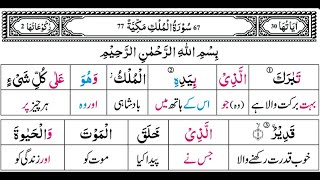 اٰیَاتُهَا 30 67 سُوْرَةُ الْمُلْكِ مَكِّیَّةٌ 77 رُكُوْعَاتُهَا 2
بِسْمِ اللّٰهِ الرَّحْمٰنِ الرَّحِیْمِ
تَبٰرَكَ الَّذِیْ بِیَدِهِ الْمُلْكُ وَهُوَ عَلٰی كُلِّ شَیْءٍ
بہت برکت والا ہے (وہ) جو اس کے ہاتھ میں بادشاہی اور وہ ہر چیز پر
قَدِیْرُ الَّذِیْ خَلَقَ الْمَوْتَ وَالْحَیٰوةَ
خوب قدرت رکھنے والا جس نے پیدا کیا موت کو اور زندگی کو